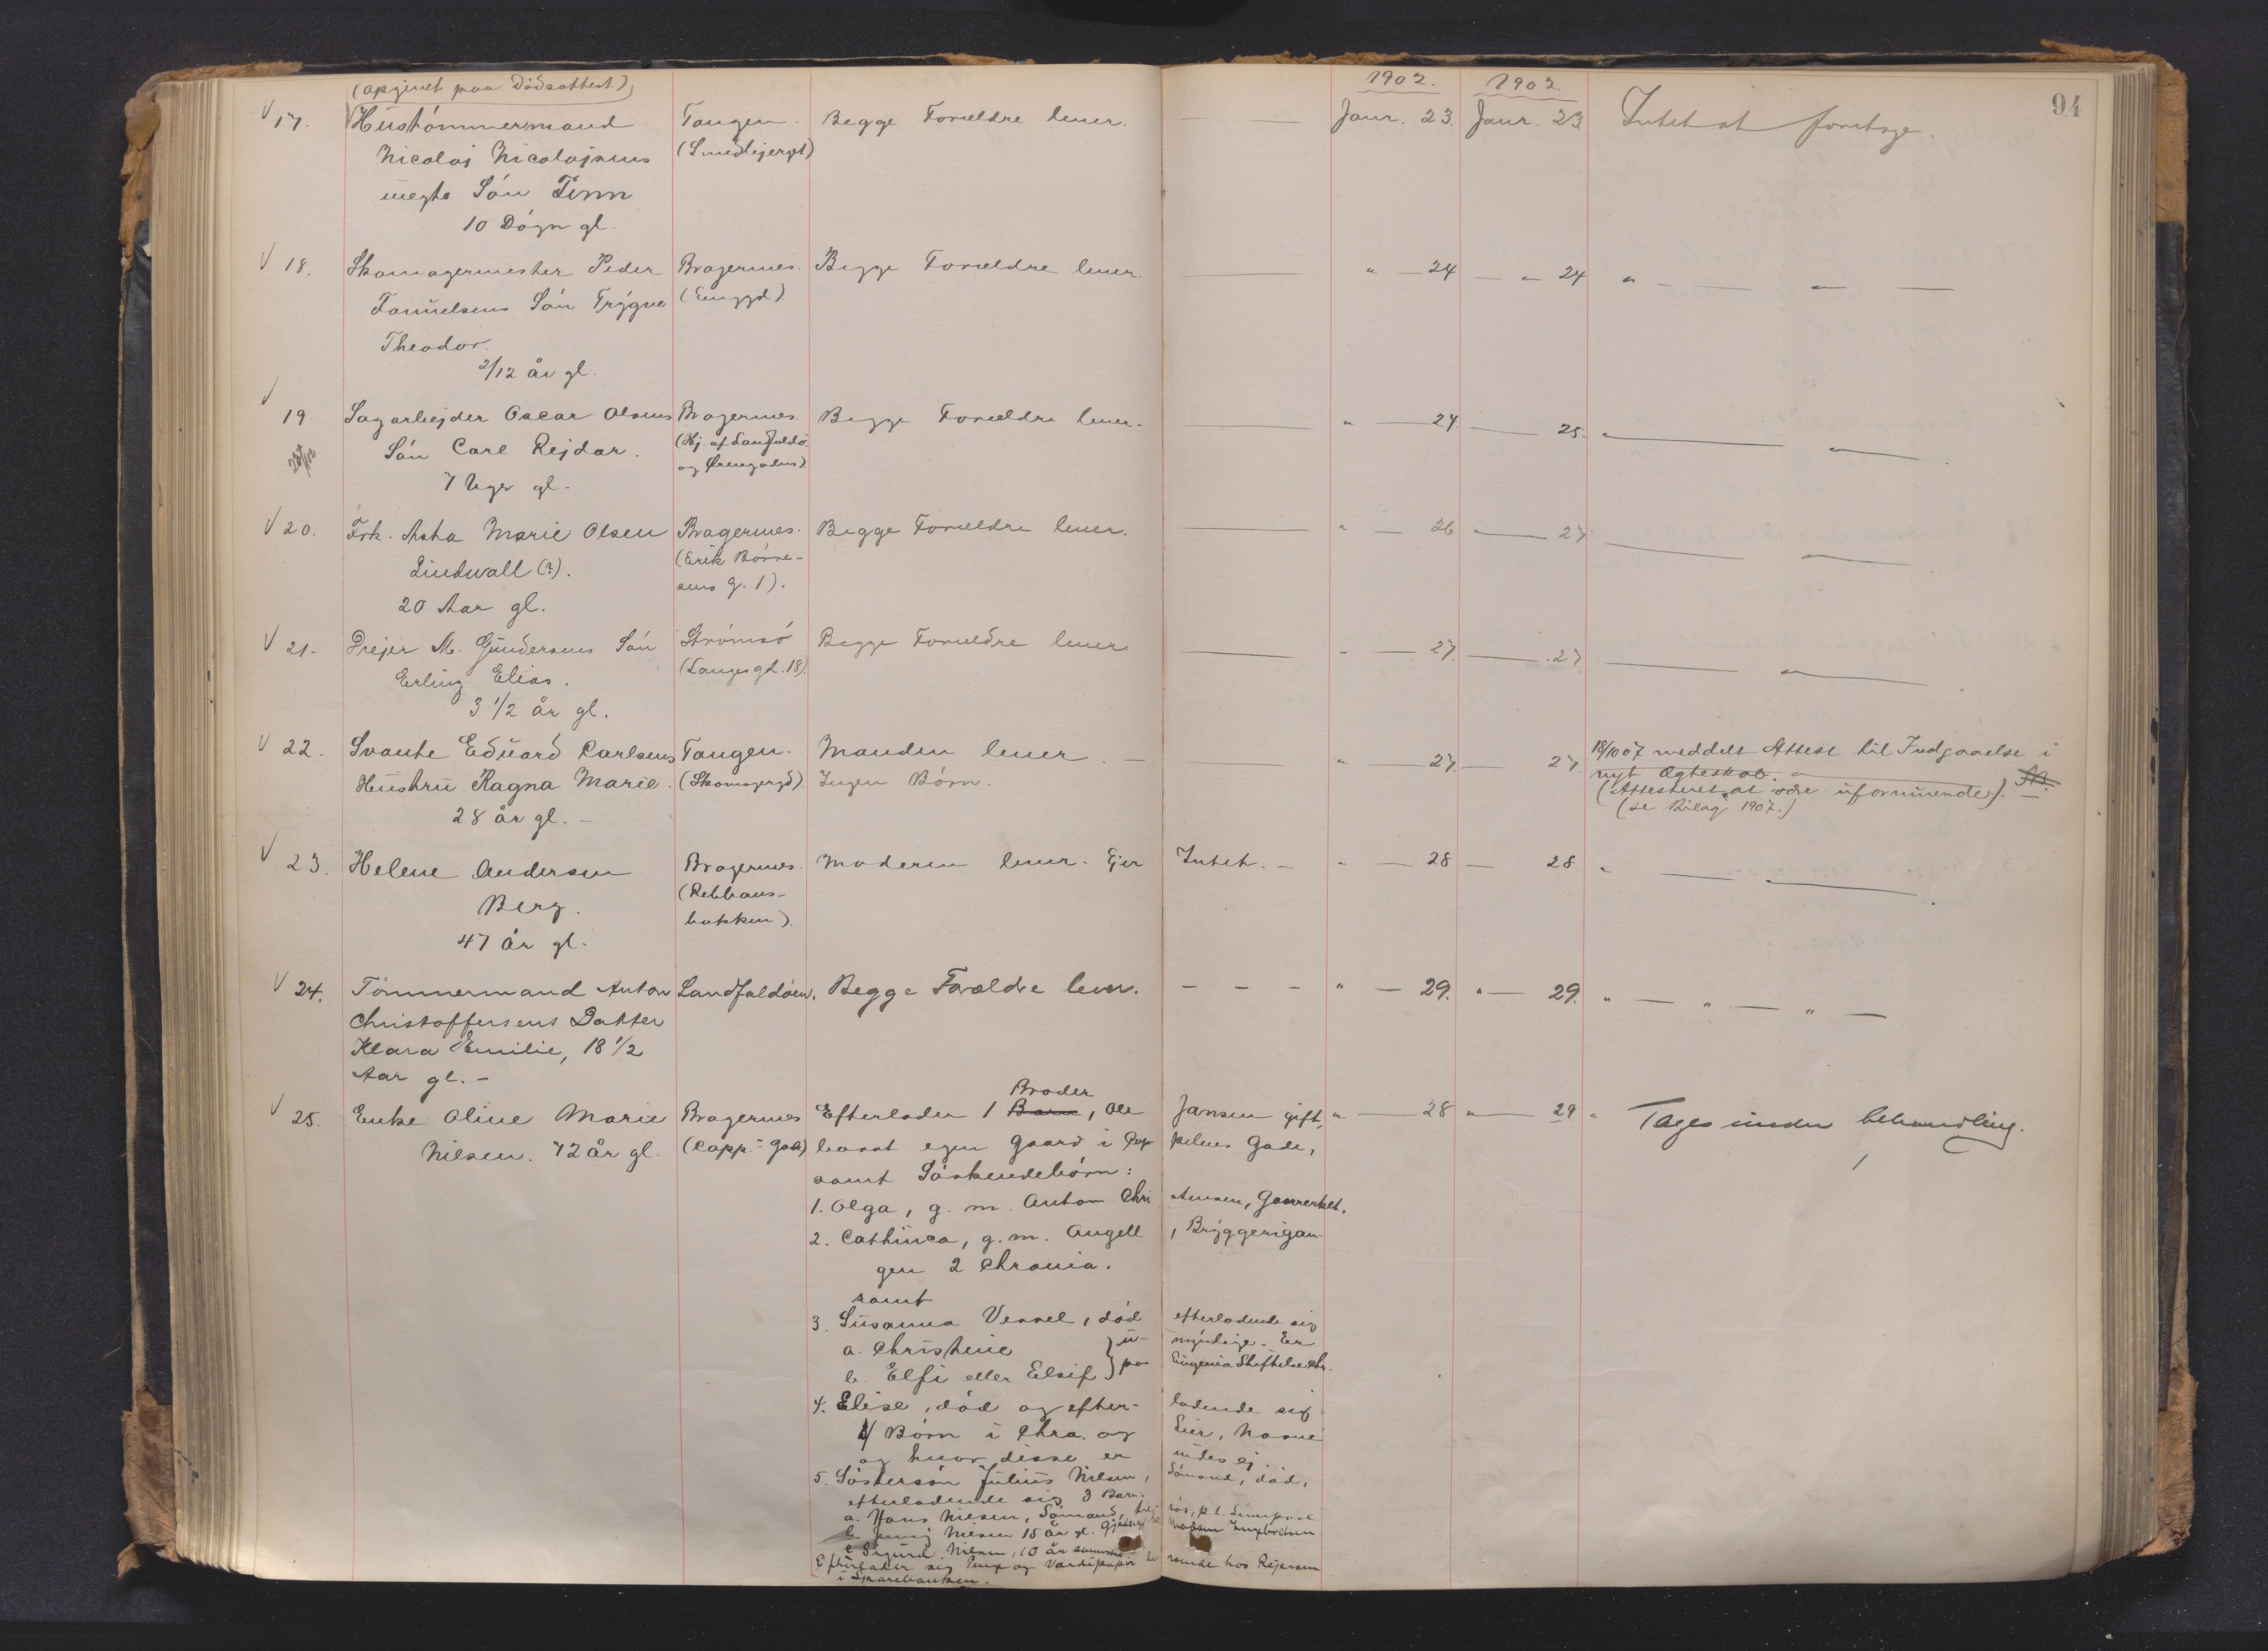 94
1902. 1902.
(opgivet paa Dödsattest)
17. Hustömmermand Tangen. Begge Forældre lever. — — Janr. 23. Janr. 23 Intet at foretage.
Nicolaj Nicolajsens (Smedbjerget)
uegte Sön Finn
10 Dögn gl.
18. Skomagermester Peder Bragernes. Begge Forældre lever. — " — 24 — " 24 " — — " —
Samuelsens Sön Trygve (Enggd).
Theodor.
2/12 år gl.
19. Sagarbejder Oscar Olsens Bragernes. Begge Forældre lever. — " — 24. — 25. " — "
Sön Carl Rejdar. (Hj. af Landfaldö-
og Ørengaden).
7 Uger gl.
20. Frk. Asta Marie Olsen Bragernes. Begge Forældre lever. — " — 26 " — 27 — "
Lindwall (?). (Erik Börre-
sens G. 1).
20 Aar gl.
21. Drejer M. Gundersens Sön Strömsö Begge Forældre lever — " — 27. — 27. — "
Erling Elias. (Langesgd. 18).
3 1/2 år gl.
22. Svante Eduard Carlsens Tangen. Manden lever. — " — 27. — 27. 18/10 07 meddelt Attest til Indgaaelse i
Hustru Ragna Marie. (Skomagergd). Ingen Börn. nyt Ægteskab.
28 år gl. — (Attesteret at være uformuende).
(se Bilag 1907.)
23. Helene Andersen Bragernes. Moderen lever. Ejer Intet. — " — 28 — 28 "
Berg. (Rebbans-
bakken).
47 år gl.
24. Tömmermand Anton Landfaldöen. Begge Forældre lever. — — — " — 29. " — 29. " — " — " —
Christoffersens Datter
Klara Emilie, 18 1/2
Aar gl. —
25. Enke Oline Marie Bragernes Efterlader 1 Barn Broder, Ole Jansen gift, " — 28 " — 29 " Tages under behandling.
Nilsen. 72 år gl. (Capp. Gade) bosat egen Gaard i Cap pelens Gade,
samt Söskendebörn:
1. Olga, g. m. Anton Chri stensen, Gasverket.
2. Cathinca, g. m. Angell, Bryggerigan-
gen 2 Chrania.
samt
3. Susanna Vessel, död efterladende sig
a. Christine } u- myndige. Er
b. Elfi eller Elsif } paa Eugenia Stiftelse Chr.
4. Elise, död og efter- ladende sig
Börn i Chra. og Lier, Navne
og hvor disse er vides ej.
5. Söstersön Julius Nilsen, Sömand, död,
efterladende sig 3 Barn:
a. Hans Nilsen, Sömand,
b. Jenny Nilsen 15 år gl.
c. Sigurd Nilsen, 10 år
Efterlader sig Penge og Værdipapir be roende hos
i Sparebanken.